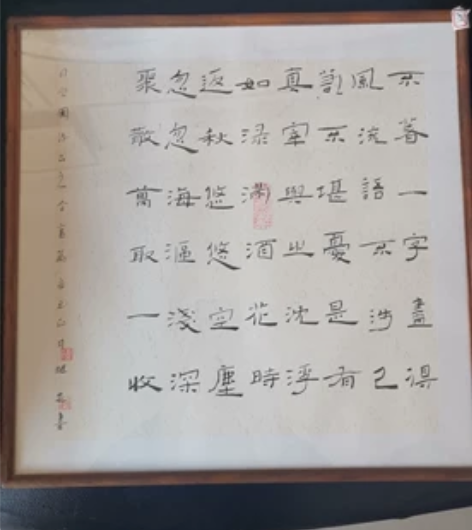 不著一字盡得
風流語不涉己
不堪憂是有
真宰與之沈浮
如淥滿酒花時
返秋悠悠空塵
忽忽海漚淺深
聚散萬取一收
司空圖詩品之含蓄書